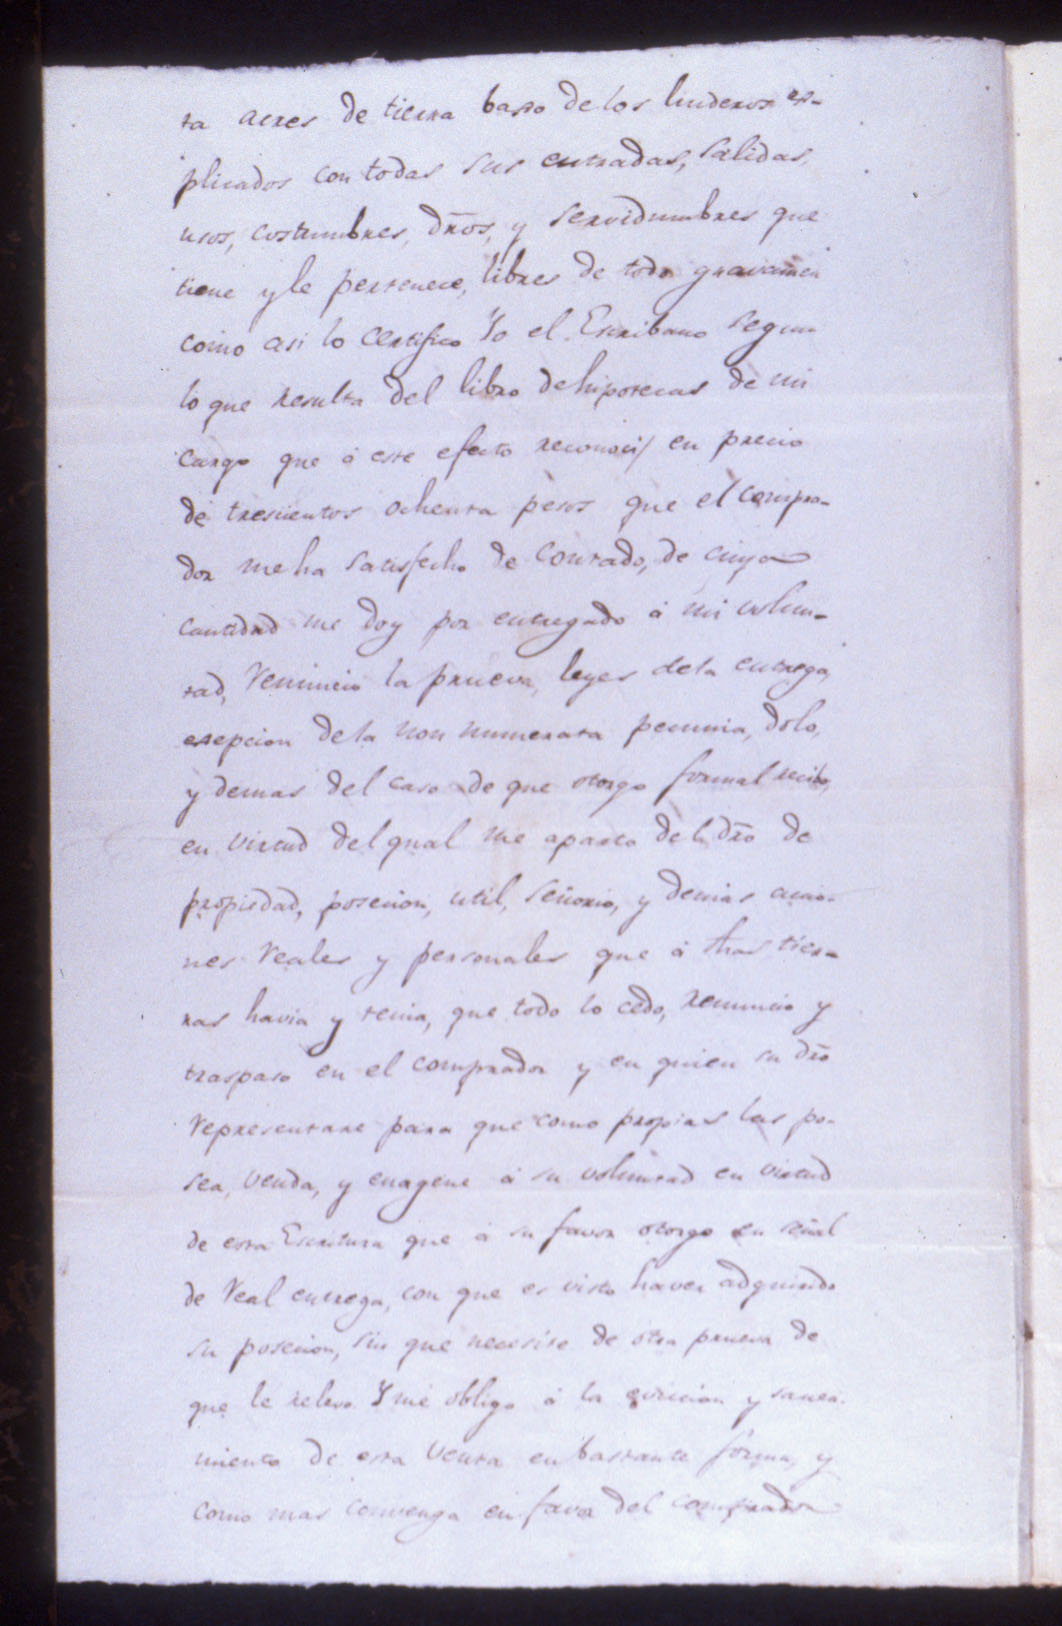 ta acres de tierra baxo de los linderos ex-
plicados con todas sus entradas, salidas,
usos, costumbres, dr̃os, y servidumbres que
tiene y le pertenece, libres de todo gravamen
como asi lo certifico Yo el Escribano segun
lo que resulta del libro de hipotecas de mi
cargo que á este efecto reconoci/ en precio
de trescientos ochenta pesos que el compra-
dor me ha satisfecho de contado, de cuya
cantidad me doy por entregado á mi volun-
tad, renuncio la prueva, leyes de la entrega,
esepcion de la non numerata pecunia, dolo,
y demas del caso de que otorgo formal recibo,
en virtud del qual me aparto del dr̃o de
propiedad, posecion, util, señorio, y demas accio-
nes reales y personales que á dhas tier-
ras havia y tenia, que todo lo cedo, renuncio y
traspaso en el comprador y en quien su dr̃o
representare para que como propias las po-
sea, venda, y enagene á su voluntad en virtud
de esta Escritura que á su favor otorgo en señal
de real entrega, con que es visto haver adquirido
su posecion, sin que necesite de otra prueva de
que le relevo. Y me obligo á la eviccion y sanea-
miento de esta venta en bastante forma, y
como mas convenga en favor del comprador